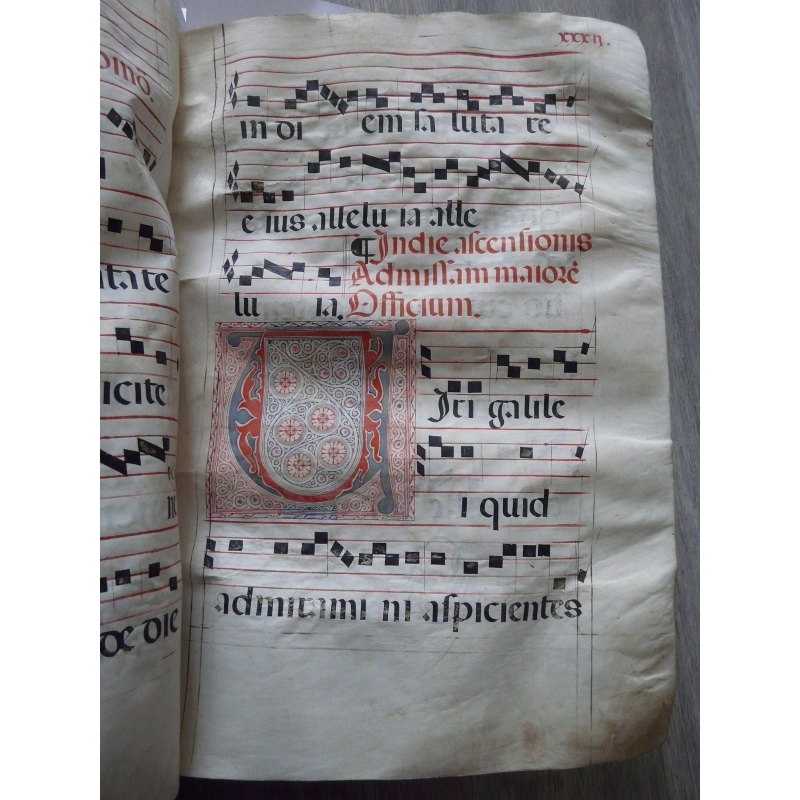 xxxii.
in di em sa luta re
e ius allelu ia alle
¶ In die ascensionis
lu ia. Ad missam maiorē
Officium.
Viri galile
i quid
admirami ni aspicientes
omō.
tate
icite
de die